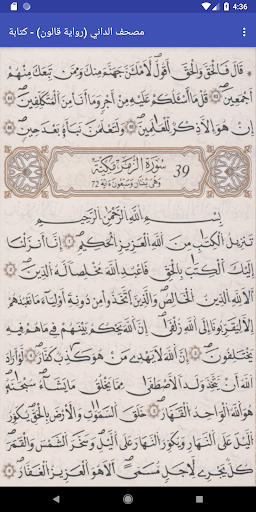 4:36
مصحف الداني (رواية قالون) - كتابة
قَالَ فَالْحَقَّ وَالْحَقَّ أَقُولُ لَأَمْلَأَنَّ جَهَنَّمَ مِنكَ وَمِمَّن تَبِعَكَ مِنْهُمْ
أَجْمَعِينَ قُلْ مَا أَسْـَٔلُكُمْ عَلَيْهِ مِنْ أَجْرٍ وَمَا أَنَا مِنَ الْمُتَكَلِّفِينَ
إِنْ هُوَ إِلَّا ذِكْرٌ لِّلْعَٰلَمِينَ وَلَتَعْلَمُنَّ نَبَأَهُ بَعْدَ حِينٍ
سُورَةُ الزُّمَرِ مَكِّيَّة 39
وَهْيَ ثِنْتَانِ وَسَبْعُونَ ءَايَة 72
بِسْمِ اللَّهِ الرَّحْمَٰنِ الرَّحِيمِ
تَنزِيلُ الْكِتَٰبِ مِنَ اللَّهِ الْعَزِيزِ الْحَكِيمِ إِنَّا أَنزَلْنَا
إِلَيْكَ الْكِتَٰبَ بِالْحَقِّ فَاعْبُدِ اللَّهَ مُخْلِصاً لَّهُ الدِّينَ
أَلَا لِلَّهِ الدِّينُ الْخَالِصُ وَالَّذِينَ اتَّخَذُوا مِن دُونِهِ أَوْلِيَاءَ مَا نَعْبُدُهُمْ
إِلَّا لِيُقَرِّبُونَا إِلَى اللَّهِ زُلْفَىٰ إِنَّ اللَّهَ يَحْكُمُ بَيْنَهُمْ فِي مَا هُمْ فِيهِ
يَخْتَلِفُونَ إِنَّ اللَّهَ لَا يَهْدِي مَنْ هُوَ كَٰذِبٌ كَفَّارٌ لَّوْ أَرَادَ
اللَّهُ أَنْ يَّتَّخِذَ وَلَداً لَّاصْطَفَىٰ مِمَّا يَخْلُقُ مَا يَشَاءُ سُبْحَٰنَهُ
هُوَ اللَّهُ الْوَٰحِدُ الْقَهَّارُ خَلَقَ السَّمَٰوَٰتِ وَالْأَرْضَ بِالْحَقِّ يُكَوِّرُ
الَّيْلَ عَلَى النَّهَارِ وَيُكَوِّرُ النَّهَارَ عَلَى الَّيْلِ وَسَخَّرَ الشَّمْسَ وَالْقَمَرَ
كُلٌّ يَجْرِي لِأَجَلٍ مُّسَمًّى أَلَا هُوَ الْعَزِيزُ الْغَفَّٰرُ